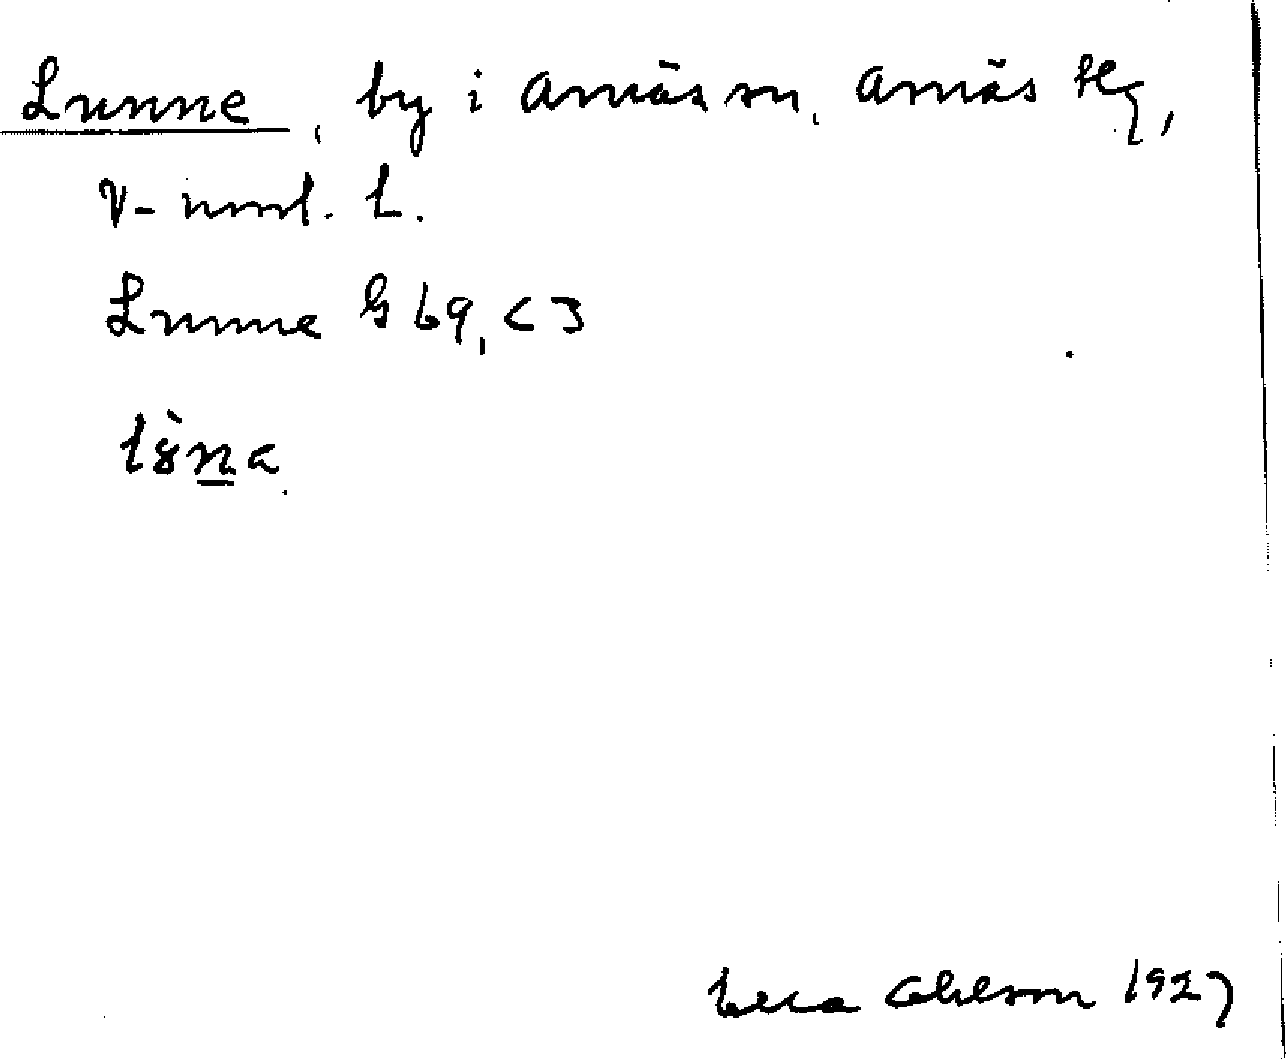 Lunne, by i Arnäs sn, Arnäs tg,
V-norrl. L.
Lunne G 69, C 3
Ohlson 1927